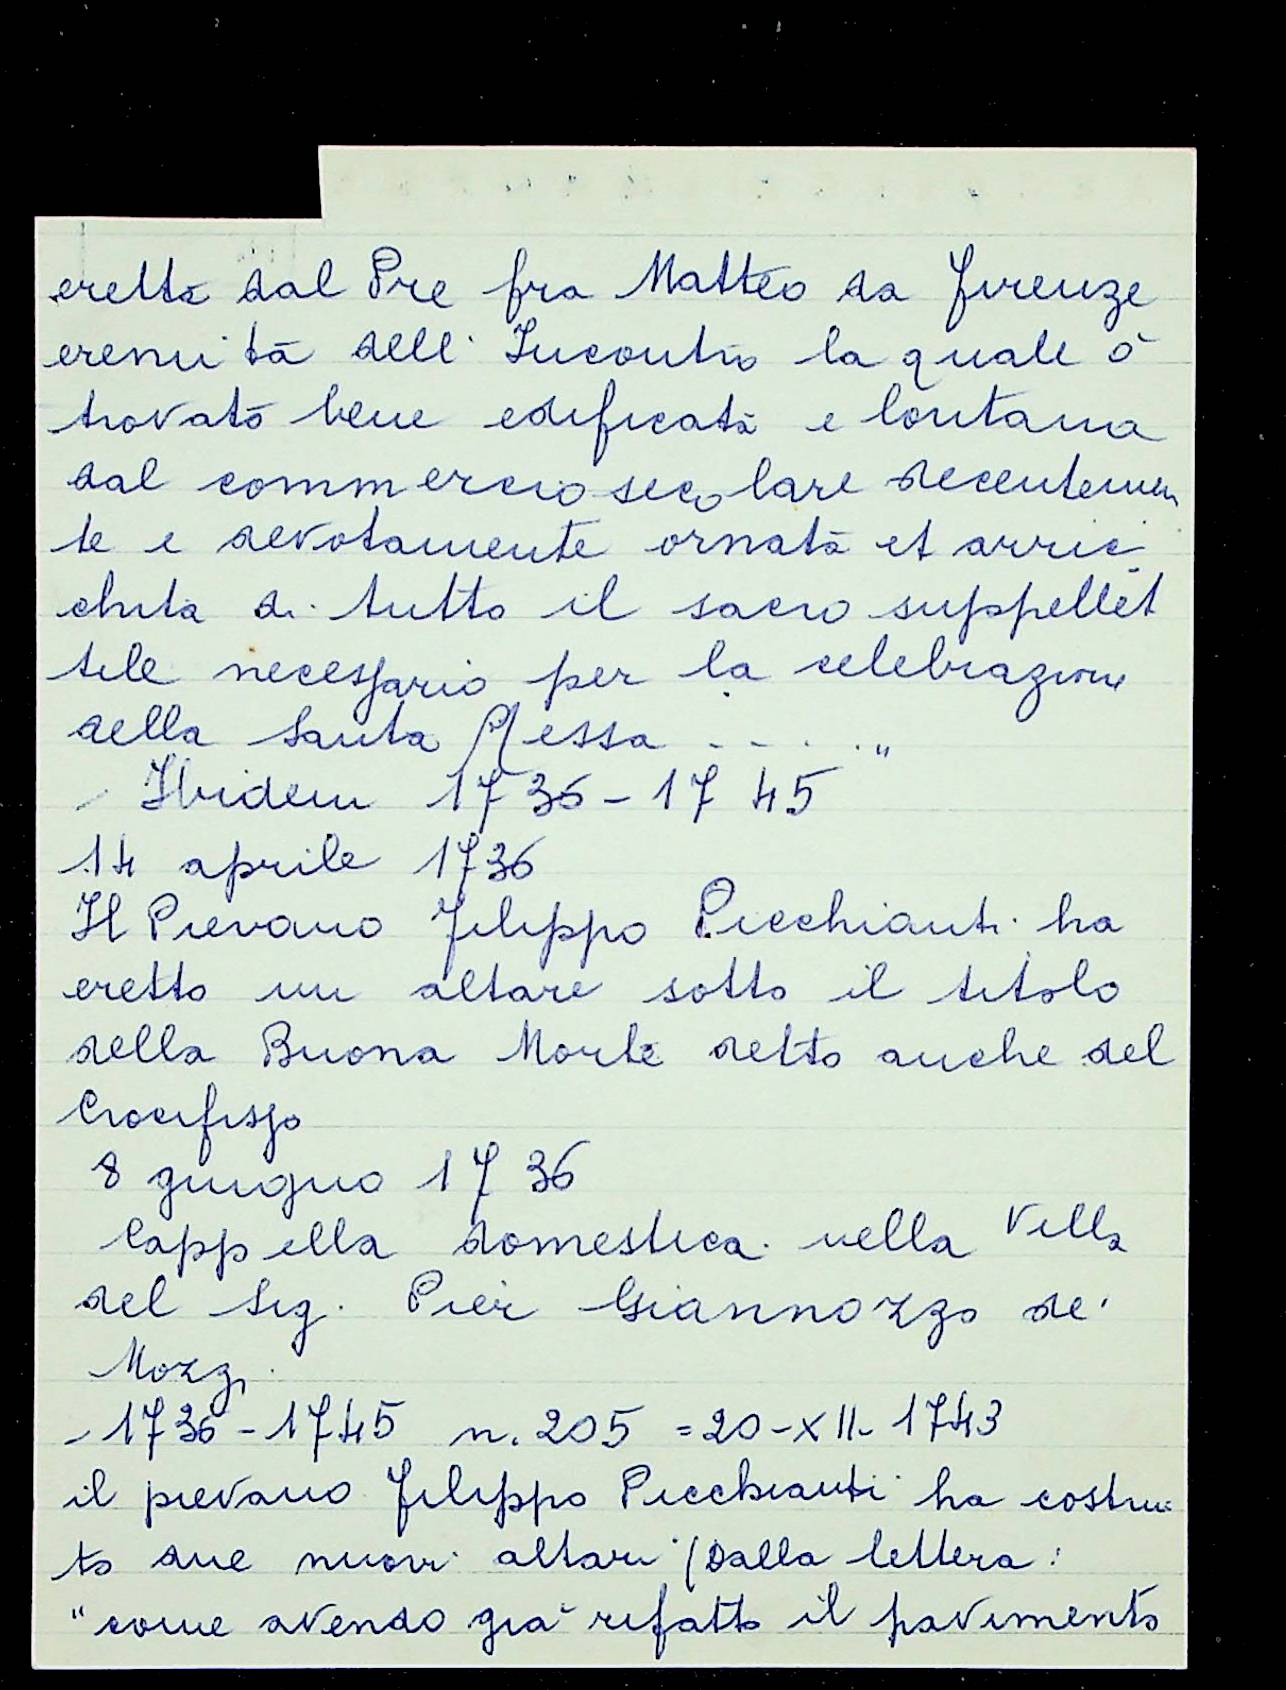 eretta dal Pre fra Matteo da Firenze
eremita dell' Incontro la quale ò
trovato bene edificata e lontana
dal commercio secolare decentemen
te e devotamente ornata et arric
chita di tutto il sacro suppellet
tile necessario per la celebrazione
della Santa Messa - - . . . "
- Ibidem 1736 - 1745
14 aprile 1736
Il Pievano Filippo Picchianti ha
eretto un altare sotto il titolo
della Buona Morte detto anche del
Crocifisso
8 giugno 1736
Cappella domestica nella Villa
del Sig. Pier Giannozzo de'
Mozzi
- 1736 - 1745 n. 205 = 20 - XII - 1743
il pievano Filippo Picchianti ha costrui
to due nuovi altari (Dalla lettera:
"come avendo già rifatto il pavimento